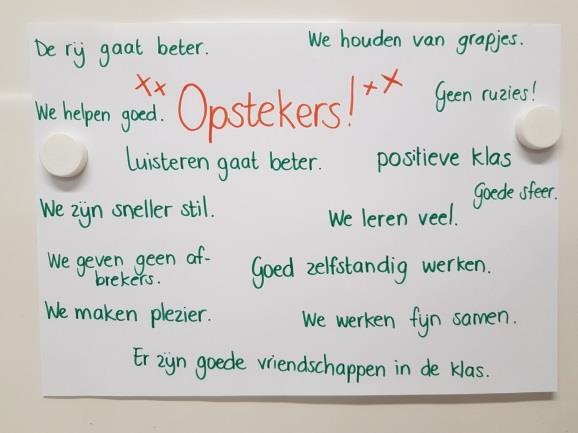 De rij gaat beter.
We houden van grapjes.
xx Opstekers! xx
Geen ruzies!
We helpen goed.
luisteren gaat beter.
positieve klas
Goede sfeer.
We zijn sneller stil.
We leren veel.
We geven geen af-
brekers.
Goed zelfstandig werken.
We maken plezier.
We werken fijn samen.
Er zijn goede vriendschappen in de klas.